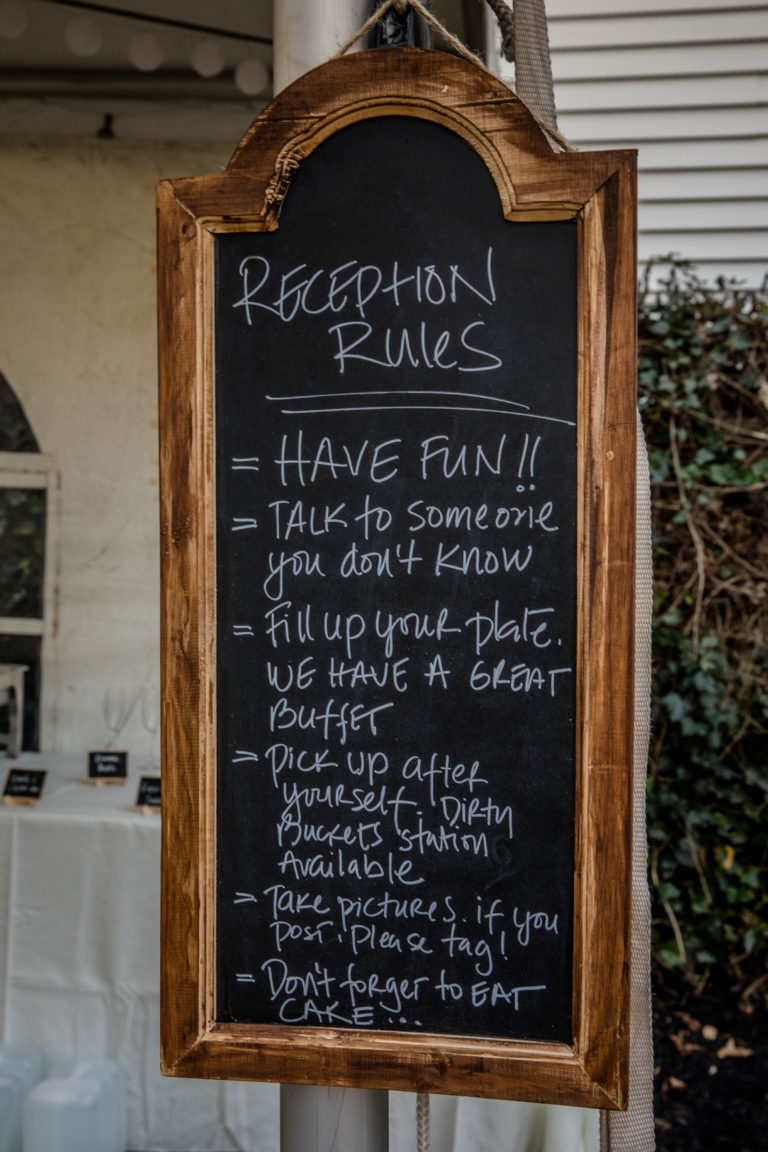 RECEPTION
RULES
= HAVE FUN!!
= TALK to someone
you don't know
= Fill up your plate.
WE HAVE A GREAT
BUFFET
= Pick up after
yourself. DIRTY
BUCKETS station
Available
= Take pictures. if you
post. Please tag!
= Don't forget to EAT
CAKE...